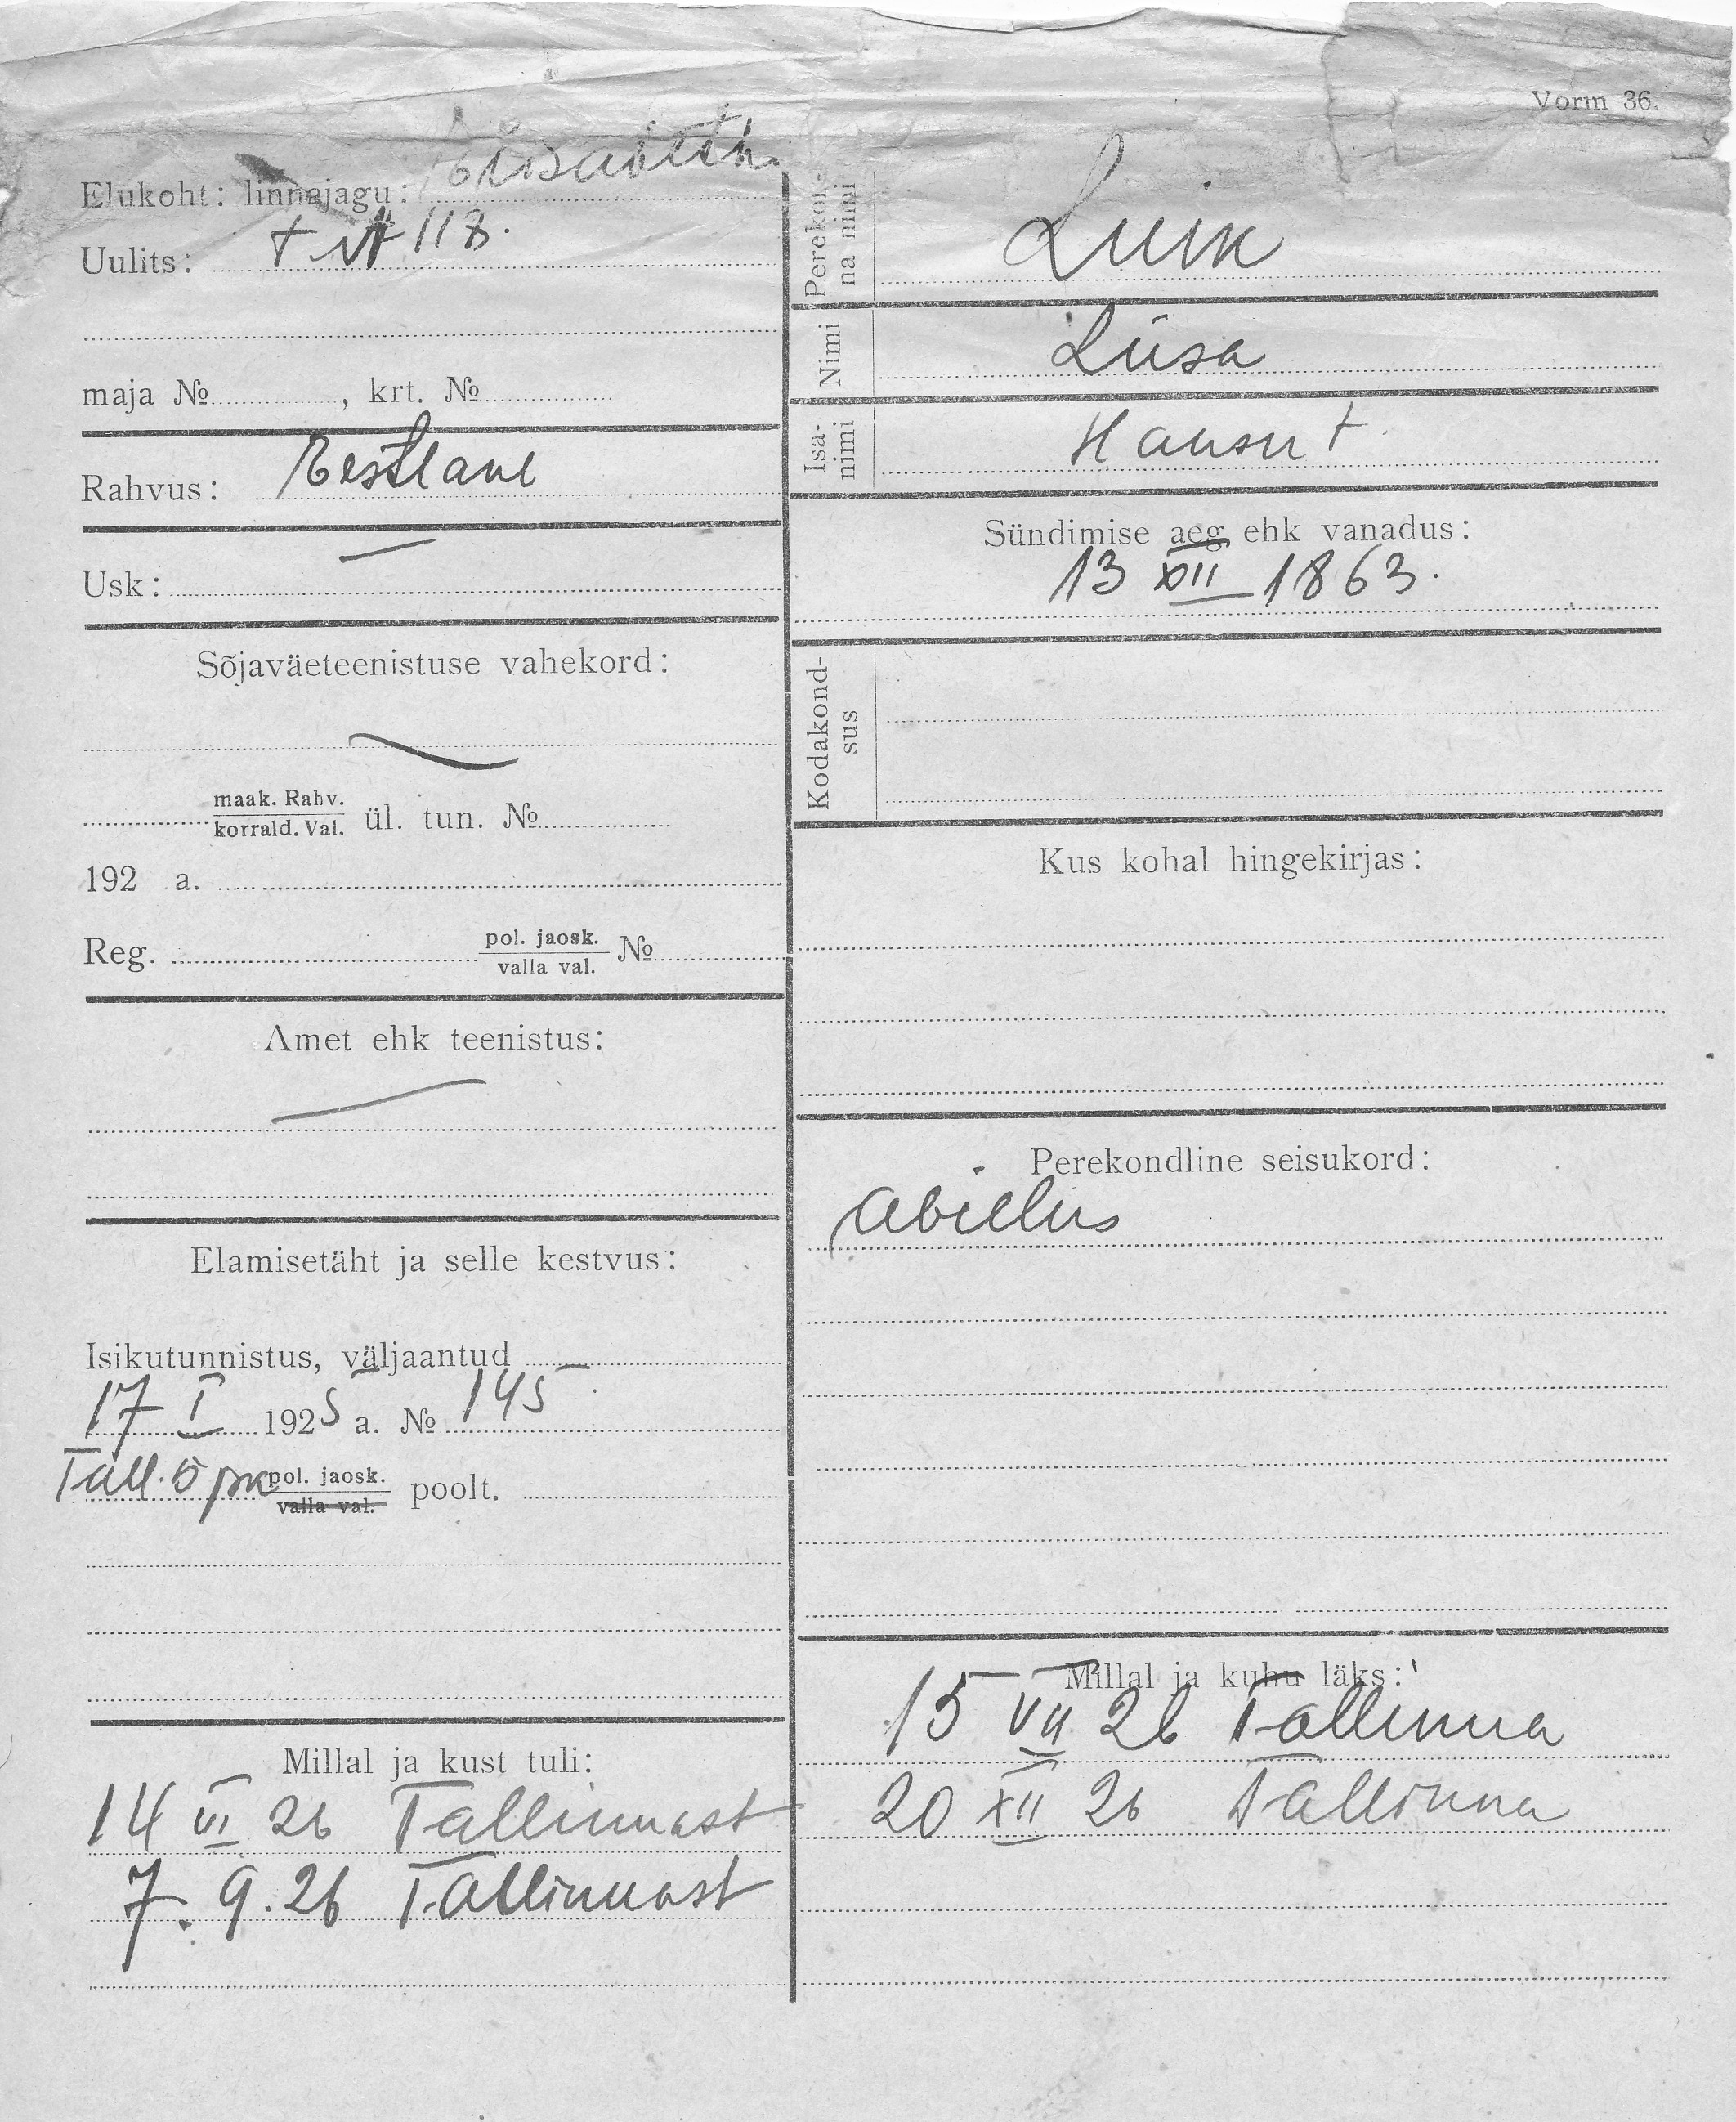 Vorm 36.
Elukoht: linnajagu: Elisabeth.
Uulits: t № 118.
maja № , krt. №
Rahvus: Eestlane
Usk: —
Sõjaväeteenistuse vahekord:
maak. Rahv.
korrald. Val. ül. tun. №
192 a.
Reg. pol. jaosk.
valla val. №
Amet ehk teenistus:
—
Elamisetäht ja selle kestvus:
Isikutunnistus, väljaantud
17 I 1925 a. № 145
Tall. 5 pk pol. jaosk.
valla val. poolt.
Millal ja kust tuli:
14 VI 26 Tallinnast
7. 9. 26 Tallinnast
Perekon-
na nimi Luik
Nimi Liisa
Isa-
nimi Hansu t
Sündimise aeg ehk vanadus:
13 XII 1863.
Kodakond-
sus
Kus kohal hingekirjas:
Perekondline seisukord:
abielus
Millal ja kuhu läks:
15 VII 26 Tallinna
20 XII 26 Tallinna